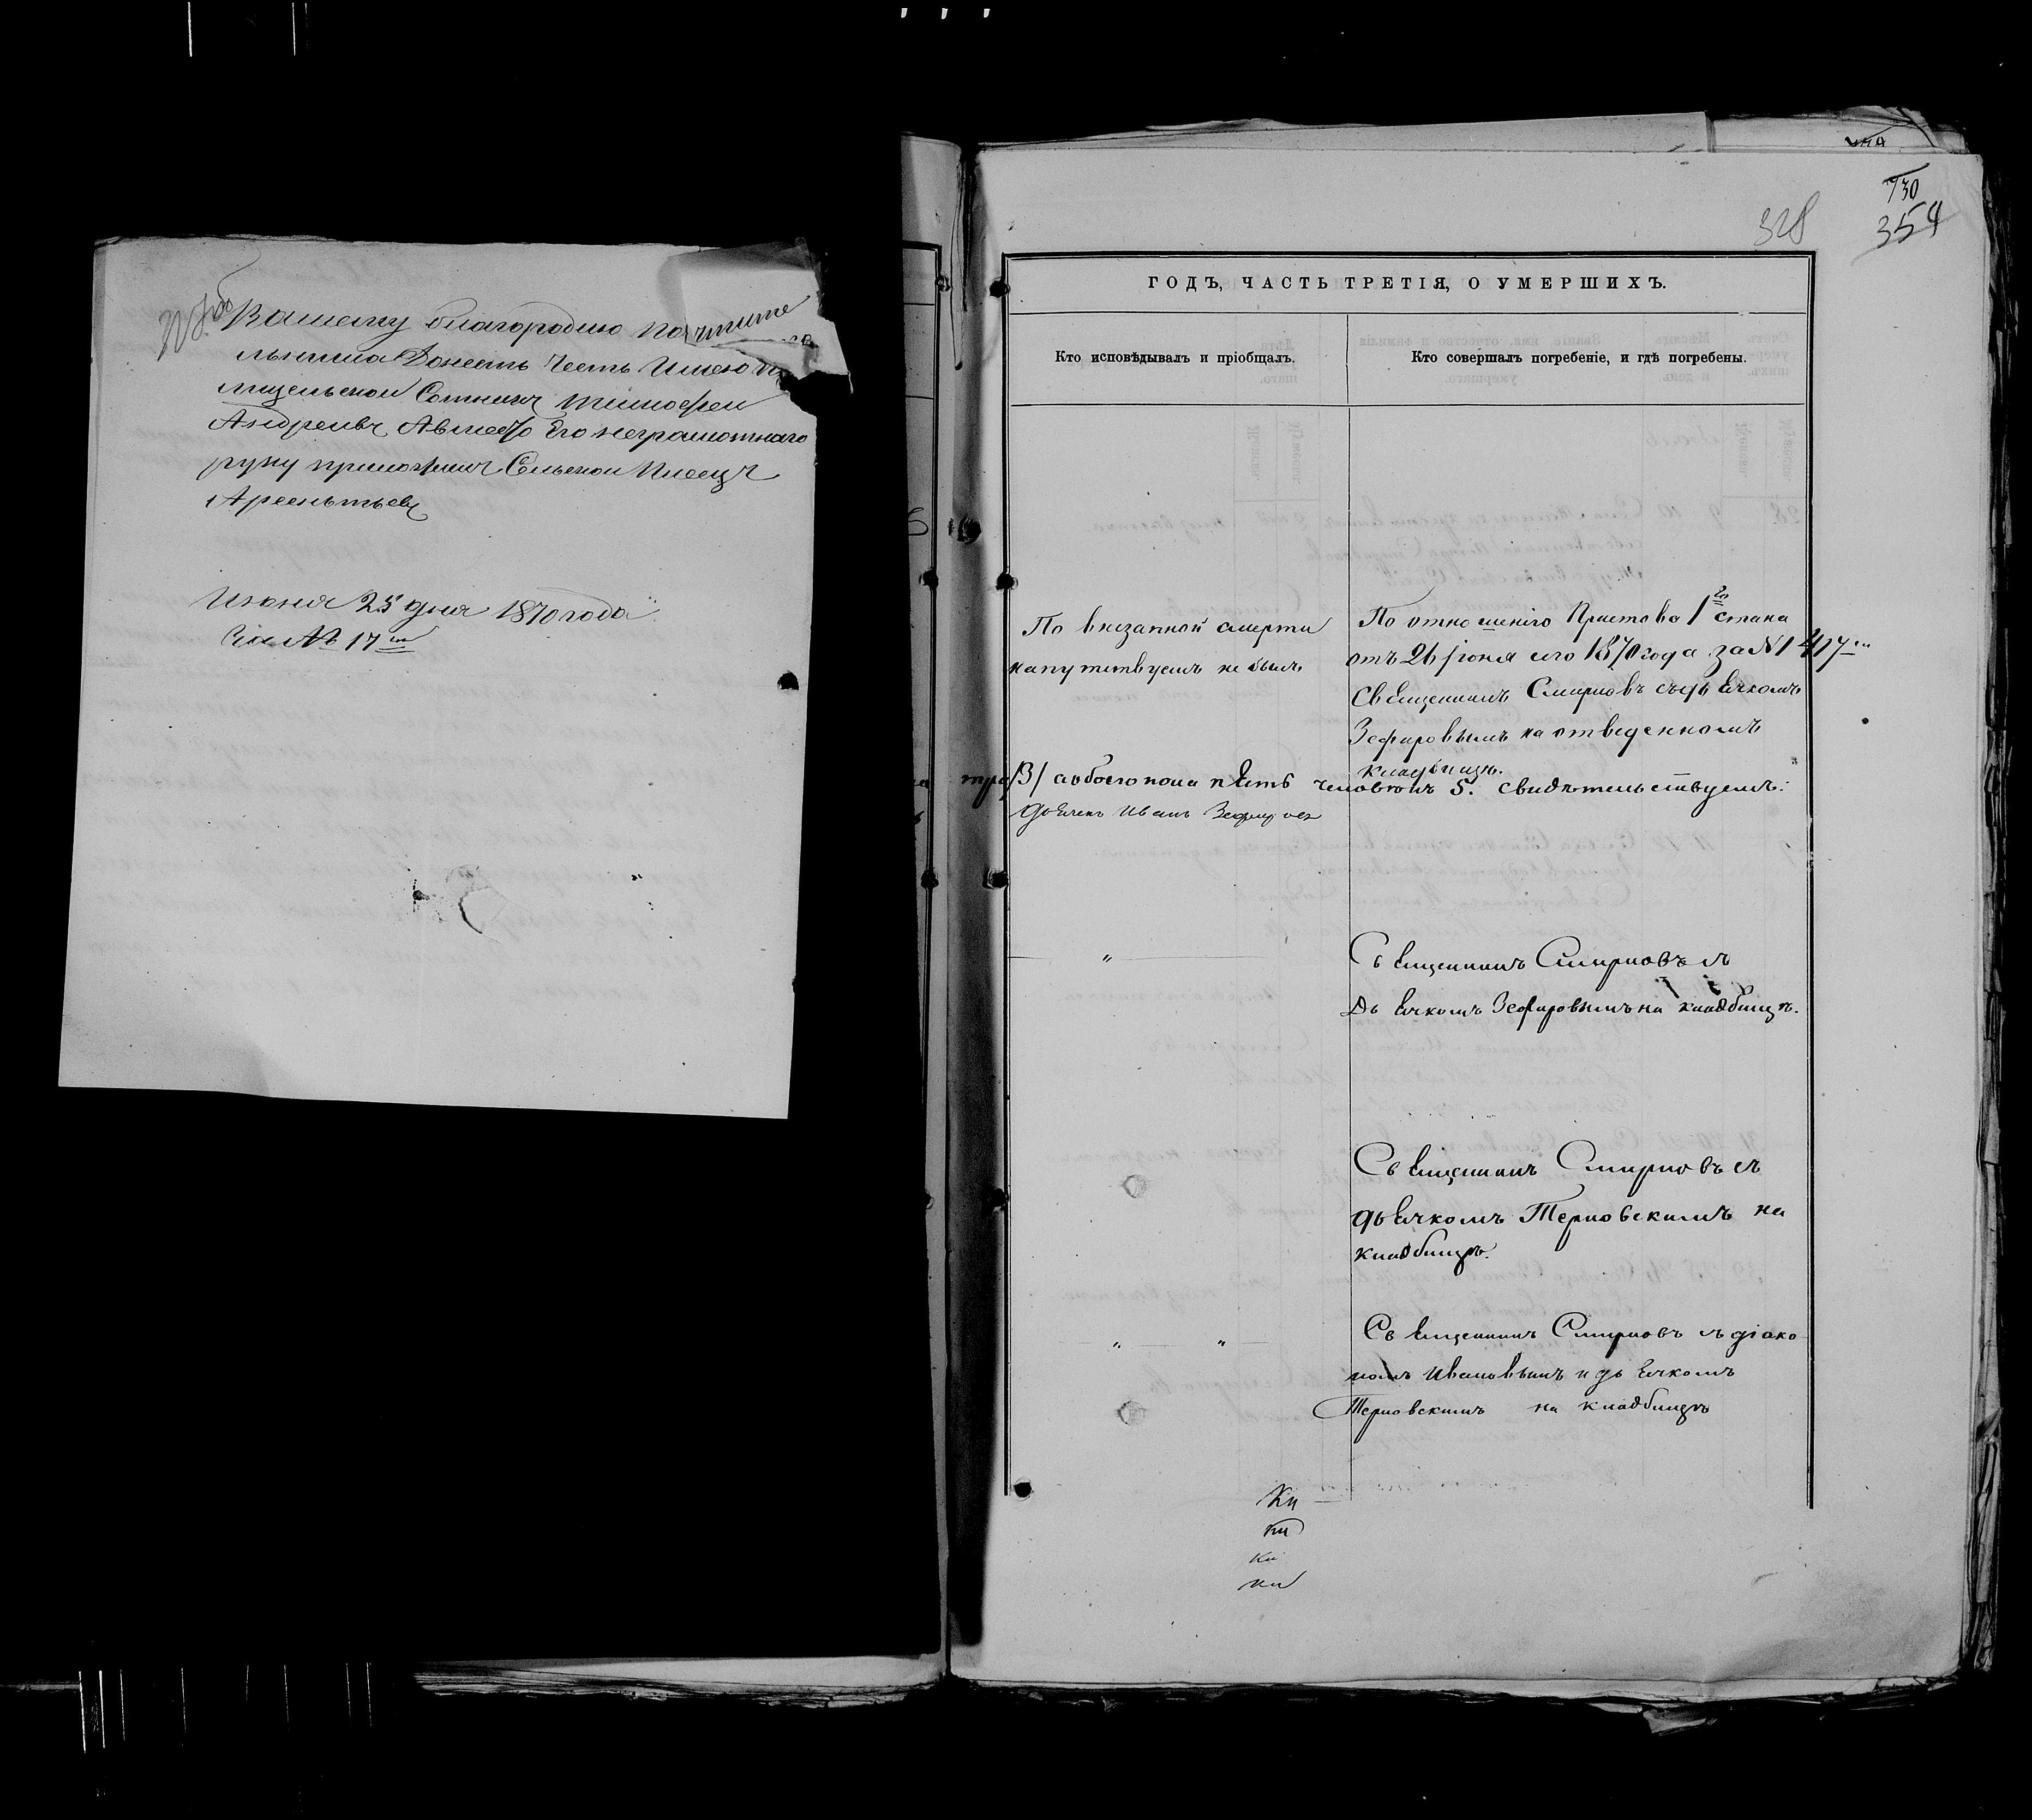 Вашему благородию почтите
льнейша Донесть Честь Имею
Сотникъ тимофеи
Андреивъ Авместо Его неграмотнаго
руку приложилъ Сельской Писецъ
Арсентьевъ
Июня 25 дня 1870 года
За № 17
130
328
354
ГОДЪ, ЧАСТЬ ТРЕТІЯ, О УМЕРШИХЪ.
Кто исповѣдывалъ и пріобщалъ.
Кто совершалъ погребеніе, и гдѣ погребены.
По внезапной смерти
напутствуемъ не былъ
По отношенію Пристава 1го стана
отъ 26 іюня сего 1870 года за № 1417
Священникъ Смирновъ съ дьячкомъ
Зефировымъ на отведенномъ
кладбищѣ.
/3/ а обоего пола пять человѣкъ 5. свидѣтельствуемъ:
дьячекъ Иванъ Зефировъ
Священникъ Смирновъ съ
Дьячкомъ Зефировымъ на кладбищѣ.
Священникъ Смирновъ съ
дьячкомъ Терновскимъ на
кладбищѣ.
Священникъ Смирновъ съ діако
номъ Ивановымъ и дьячкомъ
Терновскимъ на кладбищѣ